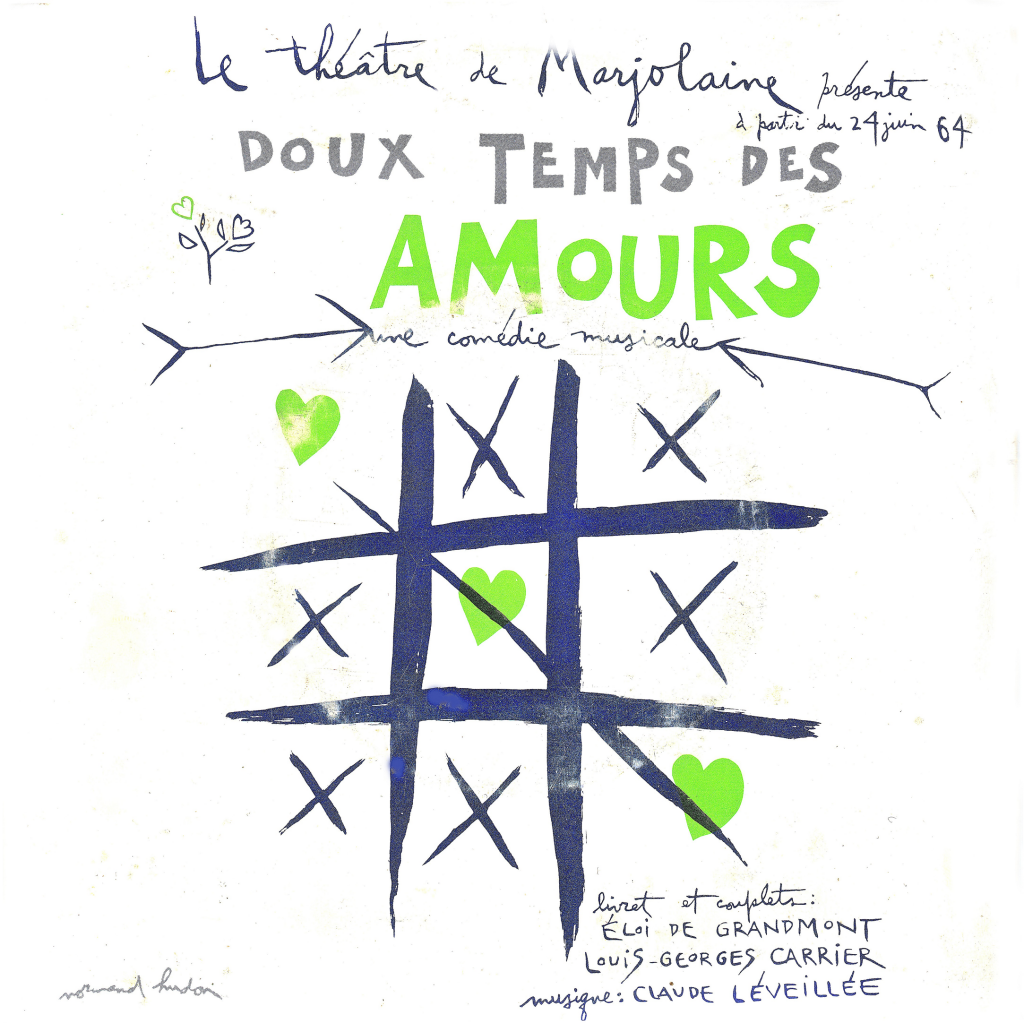 Le théâtre de Marjolaine présente
à partir du 24 juin 64
DOUX TEMPS DES
AMOURS
une comédie musicale
livret et couplets:
ÉLOI DE GRANDMONT
LOUIS-GEORGES CARRIER
musique: CLAUDE LÉVEILLÉE
normand hudon